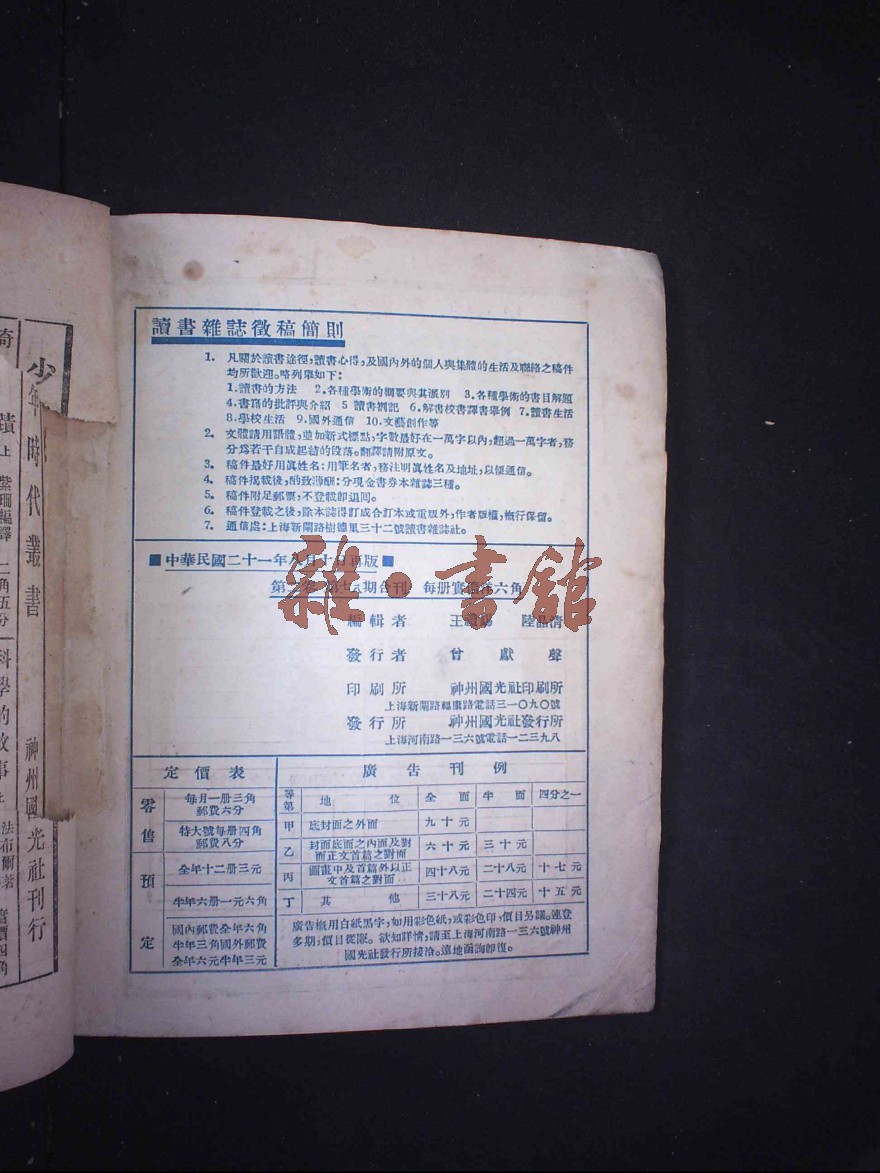 讀書雜誌徵稿簡則
1. 凡關於讀書途徑,讀書心得,及國內外的個人與集體的生活及聯絡之稿件
均所歡迎。略列舉如下:
1.讀書的方法 2.各種學術的綱要與其派別 3.各種學術的書目解題
4.書籍的批評與介紹 5 讀書劄記 6.解書校書譯書舉例 7.讀書生活
8.學校生活 9.國外通信 10.文藝創作等
2. 文體請用語體,並加新式標點,字數最好在一萬字以內,超過一萬字者,務
分爲若干自成起結的段落。翻譯請附原文。
3. 稿件最好用眞姓名;用筆名者,務注明眞姓名及地址,以便通信。
4. 稿件揭載後,酌致薄酬:分現金書券本雜誌三種。
5. 稿件附足郵票,不登載卽退囘。
6. 稿件登載之後,除本誌得訂成合訂本或重版外,作者版權,槪行保留。
7. 通信處:上海新閘路樹德里三十二號讀書雜誌社。
■中華民國二十一年 月十日再版■
第 期合刊 每册實 六角
編輯者 王 陸晶清
發行者 曾獻聲
印刷所 神州國光社印刷所
上海新閘路福康路電話三一〇九〇號
發行所 神州國光社發行所
上海河南路一三六號電話一二三九八
定價表
零售
每月一册三角
郵費六分
特大號每册四角
郵費八分
預定
全年十二册三元
半年六册一元六角
國內郵費全年六角
半年三角國外郵費
全年六元半年三元
廣告刊例
等第 地位 全面 半面 四分之一
甲 底封面之外面 九十元
乙 封面底面之內面及對面正文首篇之對面 六十元 三十元
丙 圖畫中及首篇外以正文首篇之對面 四十八元 二十八元 十七元
丁 其他 三十八元 二十四元 十五元
廣告槪用白紙黑字,如用彩色紙,或彩色印,價目另議。連登
多期,價目從廉。欲知詳情,請至上海河南路一三六號神州
國光社發行所接洽。遠地函詢卽復。
少年時代叢書 神州國光社刊行
上 紫珊編譯 二角五分
科學的故事 法布爾著 實價四角
雜·書館